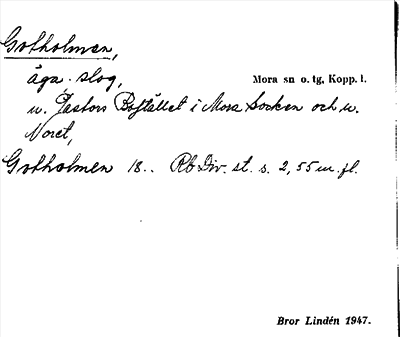 Gotholmen,
äga. slog, Mora sn o. tg, Kopp. l.
u. Pastors Bostället i Mora Socken och u.
Noret,
Gotholmen 18.. Rb Div. st. s. 2, 55 m. fl.
Bror Lindén 1947.